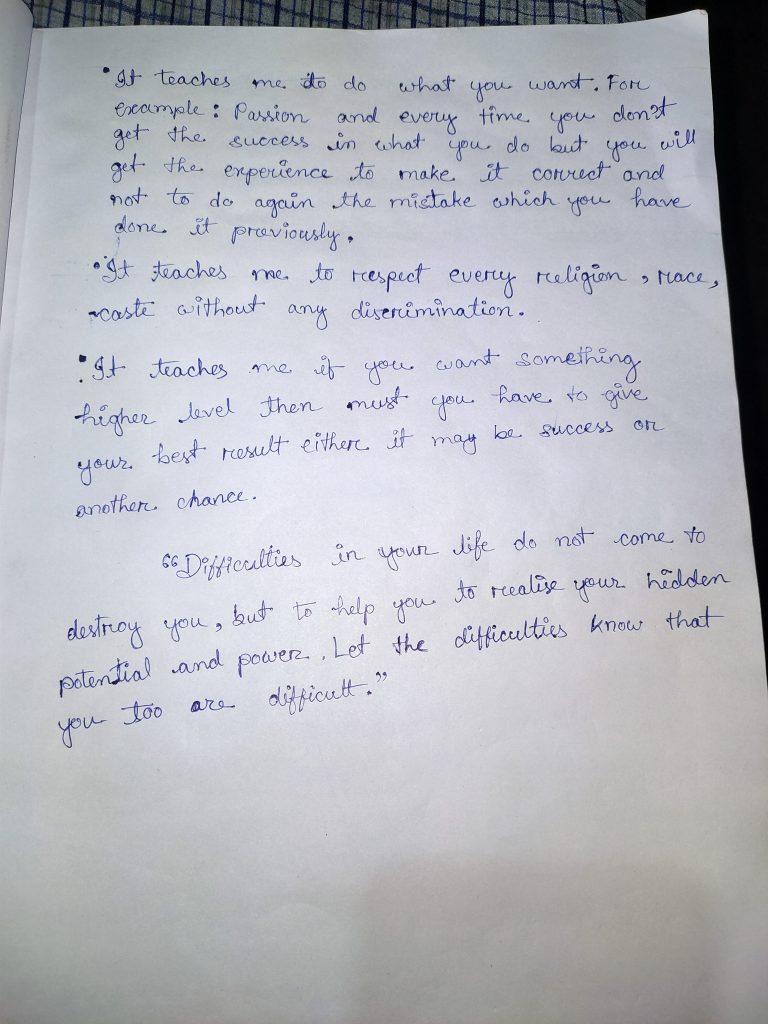 • It teaches me to do what you want. For
example : Passion and every time you don't
get the success in what you do but you will
get the experience to make it correct and
not to do again the mistake which you have
done it previously.
• It teaches me to respect every religion, race,
caste without any discrimination.
• It teaches me if you want something
higher level then must you have to give
your best result either it may be success or
another chance.
"Difficulties in your life do not come to
destroy you, but to help you to realise your hidden
potential and power. Let the difficulties know that
you too are difficult."